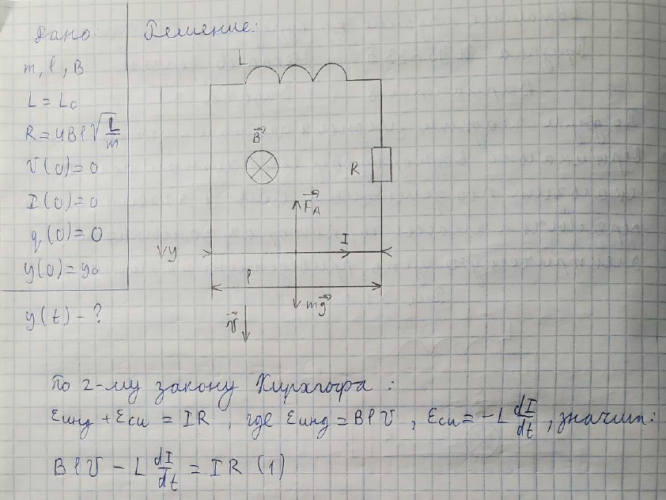 Дано
Решение:
m, l, B
L = L₀
R = 4Bl√(L/m)
V(0) = 0
I(0) = 0
q(0) = 0
y(0) = y₀
y(t) - ?
L
B⃗
R
F⃗A
I
y
l
mg⃗
v⃗
По 2-му закону Кирхгофа:
Eинд + Eси = IR, где Eинд = BlV, Eси = -L dI/dt, значит:
BlV - L dI/dt = IR (1)